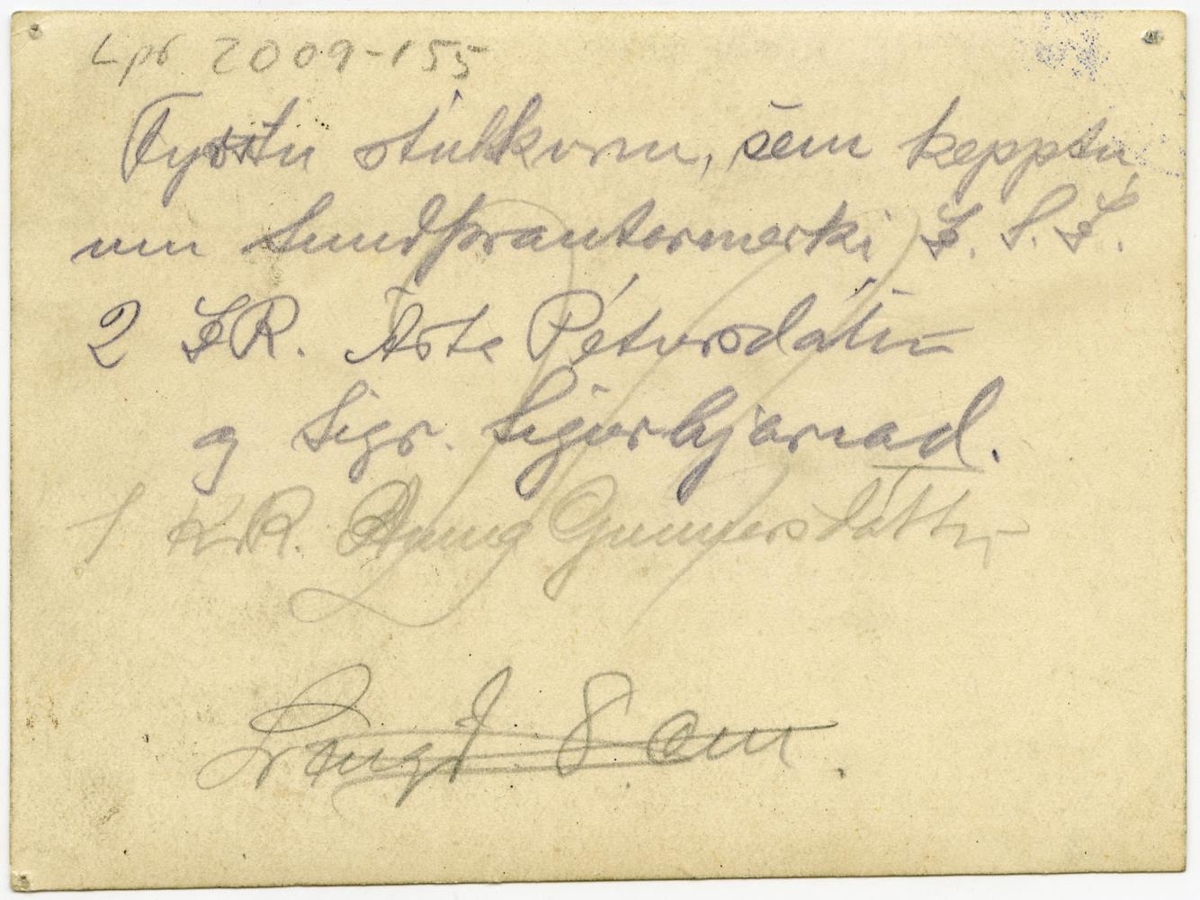 Lpr 2009-155
Fyrstu stúlkurnar, sem kepptu
um Sundþrautarmerki Í. S. Í.
2 ÍR. Ásta Pétursdóttir
og Sigr. Sigurbjarnad.
1 K.R. Anna Gunnarsdóttir
8 cm.